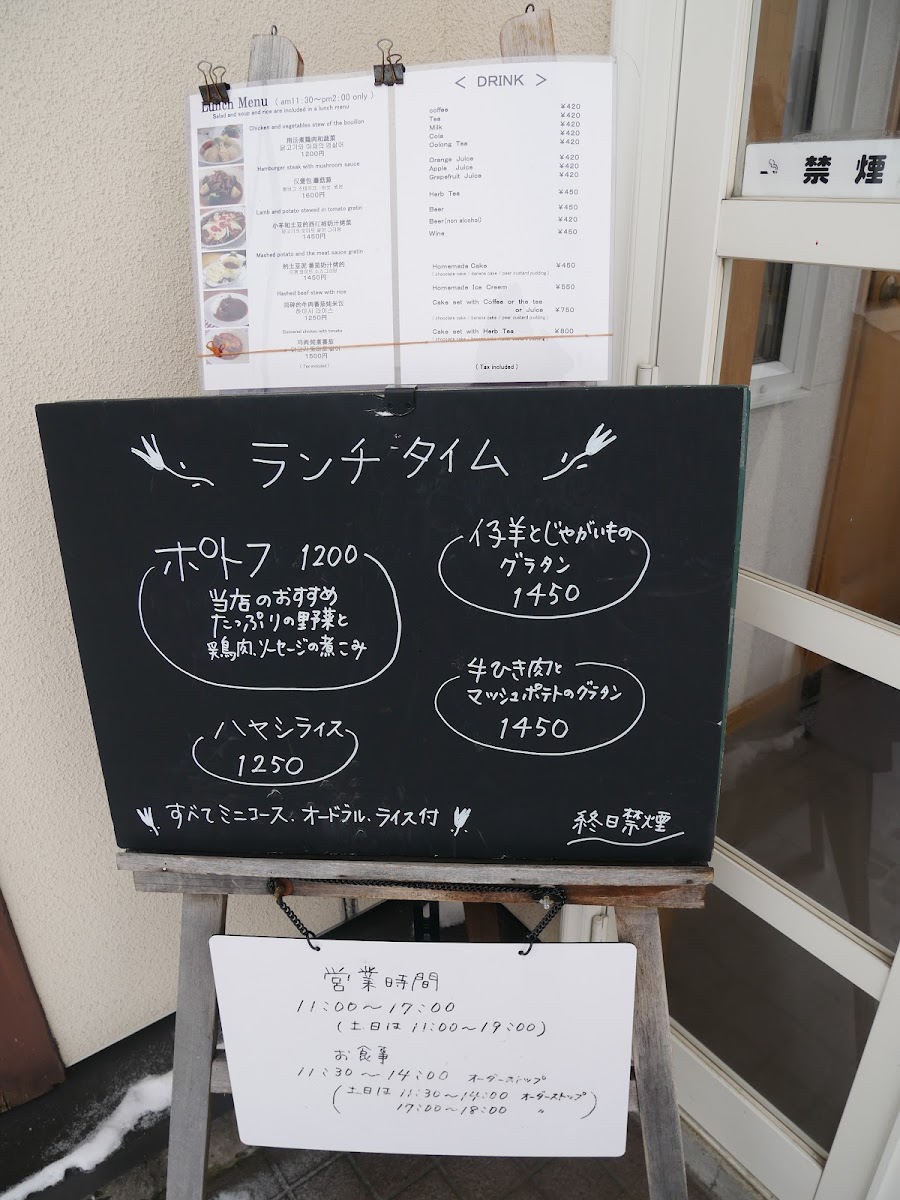 Lunch Menu ( am11:30～pm2:00 only )
Salad and soup and rice are included in a lunch menu
Chicken and vegetables stew of the bouillon
1200円
Hamburger steak with mushroom sauce
1600円
Lamb and potato stewed in tomato gratin
1450円
Mashed potato and the meat sauce gratin
1450円
Hashed beef stew with rice
하이시 라이스
1250円
1500円
( Tax included )
< DRINK >
coffee ¥420
Tea ¥420
Milk ¥420
Cola ¥420
Oolong Tea ¥420
Orange Juice ¥420
Apple Juice ¥420
Grapefruit Juice ¥420
Herb Tea ¥450
Beer ¥450
Beer(non alcohol) ¥420
Wine ¥450
Homemade Cake ¥450
( chocolate cake / banana cake / pear custard pudding )
Homemade Ice Creem ¥550
Cake set with Coffee or the tea
or Juice ¥750
( chocolate cake / banana cake / pear custard pudding )
Cake set with Herb Tea ¥800
( Tax included )
禁煙
ランチタイム
ポトフ 1200
当店のおすすめ
たっぷりの野菜と
鶏肉、ソーセージの煮こみ
仔羊とじゃがいもの
グラタン
1450
牛ひき肉と
マッシュポテトのグラタン
1450
ハヤシライス
1250
すべてミニコース、オードブル、ライス付
終日禁煙
営業時間
11:00～17:00
(土日は 11:00～19:00)
お食事
11:30～14:00 オーダーストップ
(土日は 11:30～14:00 オーダーストップ
17:00～18:00 〃 )